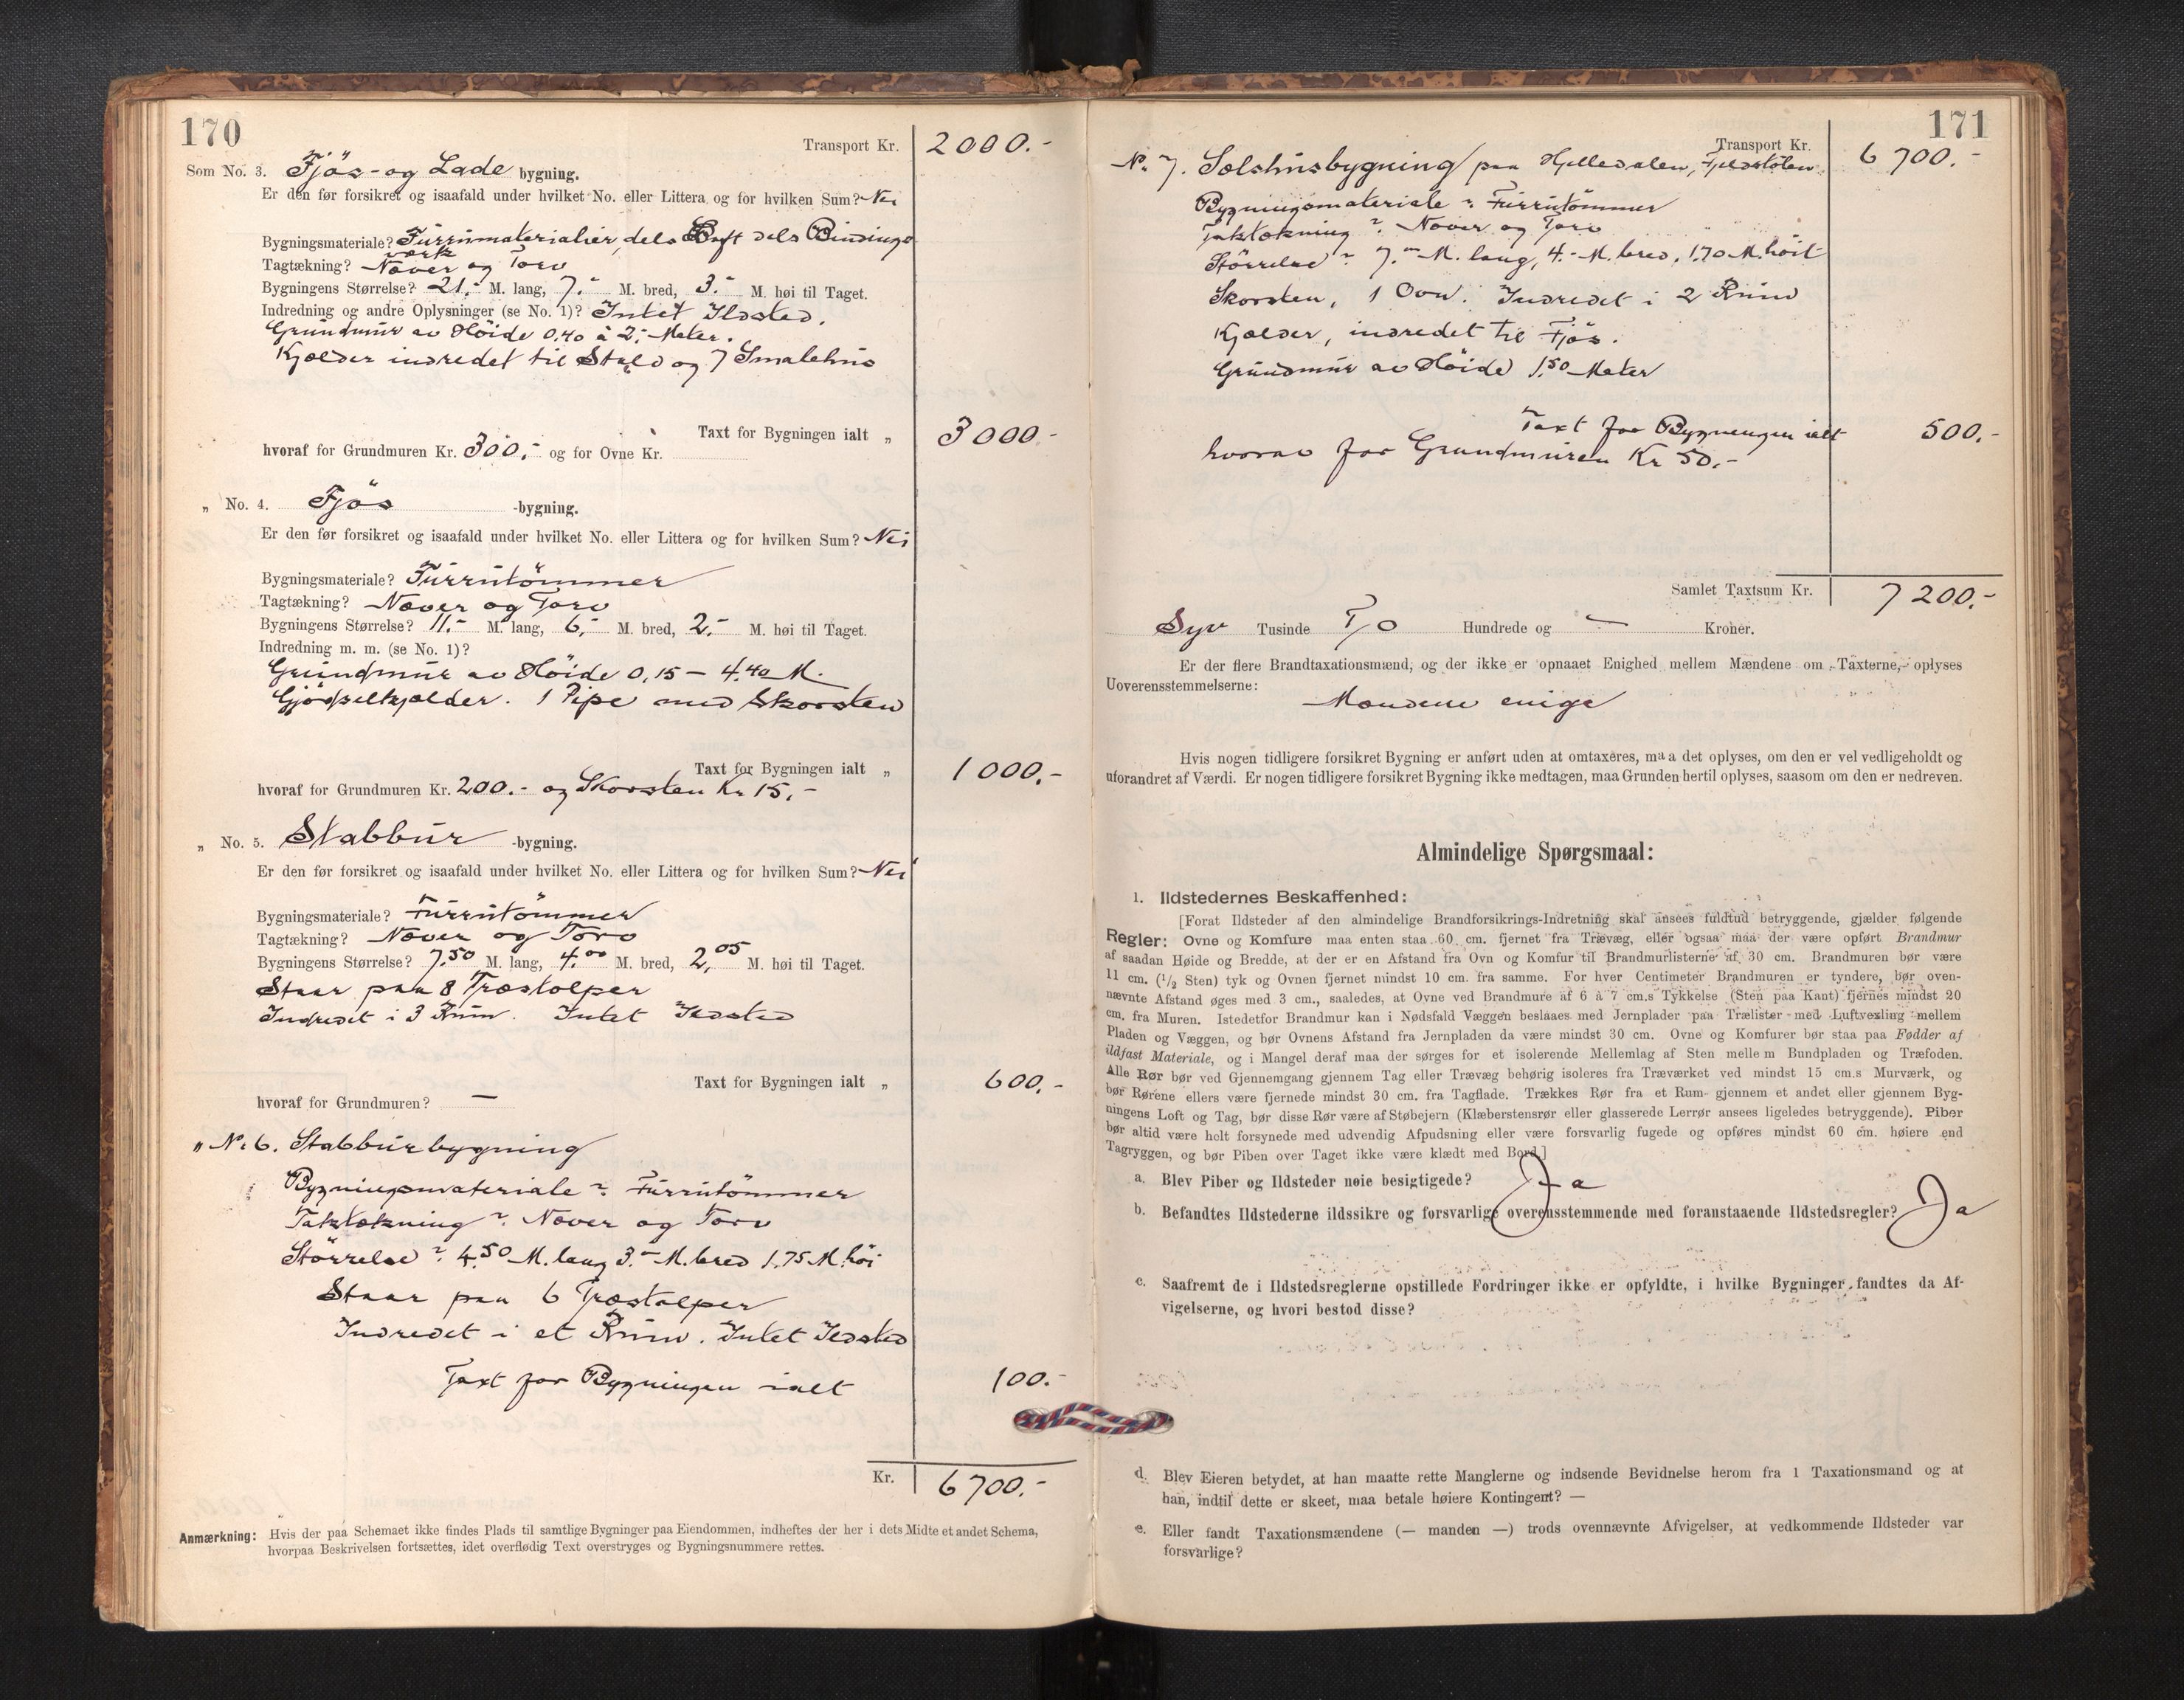 170
Transport Kr. 2000.-
Som No. 3. Fjös- og Lade bygning.
Er den før forsikret og isaafald under hvilket No. eller Littera og for hvilken Sum? Nei
Bygningsmateriale? Furrumaterialier, dels Luft dels Bindings
værk
Tagtækning? Næver og Torv
Bygningens Størrelse? 21.- M. lang, 7.- M. bred, 3.- M. høi til Taget.
Indredning og andre Oplysninger (se No. 1)? Intet Ildsted.
Grundmur av Höide 0,40 à 2.- Meter.
Kjælder indredet til Stald og 7 Smalehus
Taxt for Bygningen ialt „ 3000.-
hvoraf for Grundmuren Kr. 300.- og for Ovne Kr.
„ No. 4. Fjös -bygning.
Er den før forsikret og isaafald under hvilket No. eller Littera og for hvilken Sum? Nei
Bygningsmateriale? Furrutömmer
Tagtækning? Næver og Torv
Bygningens Størrelse? 11.- M. lang, 6.- M. bred, 2.- M. høi til Taget.
Indredning m. m. (se No. 1)?
Grundmur av Höide 0,15 - 4.40 M.
Gjödselkjælder. 1 Pipe med Skorsten
Taxt for Bygningen ialt „ 1000.-
hvoraf for Grundmuren Kr. 200.- og Skorsten Kr 15.-
„ No. 5. Stabbur -bygning.
Er den før forsikret og isaafald under hvilket No. eller Littera og for hvilken Sum? Nei
Bygningsmateriale? Furrutömmer
Tagtækning? Næver og Torv
Bygningens Størrelse? 7.50 M. lang, 4.00 M. bred, 2,05 M. høi til Taget.
Staar paa 8 Træstolper
Indredet i 3 Rum. Intet Ildsted
Taxt for Bygningen ialt „ 600.-
hvoraf for Grundmuren? —
„ No 6. Stabburbygning
Bygningsmateriale? Furrutömmer
Taktækning? Næver og Torv
Störrelse? 4.50 M. lang 3.- M. bred 1.75 M. höi
Staar paa 6 Træstolper
Indredet i et Rum. Intet Ildsted
Taxt for Bygningen ialt 100.-
Kr. 6700.-
Anmærkning: Hvis der paa Schemaet ikke findes Plads til samtlige Bygninger paa Eiendommen, indheftes der her i dets Midte et andet Schema,
hvorpaa Beskrivelsen fortsættes, idet overflødig Text overstryges og Bygningsnummere rettes.
171
Transport Kr. 6700.-
No 7. Sælshusbygning paa Hjelledalen, Fjeldstölen
Bygningsmateriale? Furrutömmer
Taktækning? Næver og Torv
Störrelse? 7.- M. lang, 4.- M. bred, 1.70 M. höit
Skorsten, 1 Ovn. Indredet i 2 Rum
Kjælder, indredet til Fjös.
Grundmur av Höide 1.50 Meter
Taxt for Bygningen ialt 500.-
hvorav for Grundmuren Kr 50.-
Samlet Taxtsum Kr. 7200.-
Syv Tusinde To Hundrede og — Kroner.
Er der flere Brandtaxationsmænd, og der ikke er opnaaet Enighed mellem Mændene om Taxterne, oplyses
Uoverensstemmelserne:
Mændene enige
Hvis nogen tidligere forsikret Bygning er anført uden at omtaxeres, maa det oplyses, om den er vel vedligeholdt og
uforandret af Værdi. Er nogen tidligere forsikret Bygning ikke medtagen, maa Grunden hertil oplyses, saasom om den er nedreven.
Almindelige Spørgsmaal:
1. Ildstedernes Beskaffenhed:
[Forat Ildsteder af den almindelige Brandforsikrings-Indretning skal ansees fuldtud betryggende, gjælder følgende
Regler: Ovne og Komfure maa enten staa 60 cm. fjernet fra Trævæg, eller ogsaa maa der være opført Brandmur
af saadan Høide og Bredde, at der er en Afstand fra Ovn og Komfur til Brandmurlisterne af 30 cm. Brandmuren bør være
11 cm. (1/2 Sten) tyk og Ovnen fjernet mindst 10 cm. fra samme. For hver Centimeter Brandmuren er tyndere, bør oven-
nævnte Afstand øges med 3 cm., saaledes, at Ovne ved Brandmure af 6 à 7 cm.s Tykkelse (Sten paa Kant) fjernes mindst 20
cm. fra Muren. Istedetfor Brandmur kan i Nødsfald Væggen beslaaes med Jernplader paa Trælister med Luftvexling mellem
Pladen og Væggen, og bør Ovnens Afstand fra Jernpladen da være mindst 30 cm. Ovne og Komfurer bør staa paa Fødder af
ildfast Materiale, og i Mangel deraf maa der sørges for et isolerende Mellemlag af Sten mellem Bundpladen og Træfoden.
Alle Rør bør ved Gjennemgang gjennem Tag eller Trævæg behørig isoleres fra Træværket ved mindst 15 cm.s Murværk, og
bør Rørene ellers være fjernede mindst 30 cm. fra Tagflade. Trækkes Rør fra et Rum gjennem et andet eller gjennem Byg-
ningens Loft og Tag, bør disse Rør være af Støbejern (Klæberstensrør eller glasserede Lerrør ansees ligeledes betryggende). Piber
bør altid være helt forsynede med udvendig Afpudsning eller være forsvarlig fugede og opføres mindst 60 cm. høiere end
Tagryggen, og bør Piben over Taget ikke være klædt med Bord.]
a. Blev Piber og Ildsteder nøie besigtigede? Ja
b. Befandtes Ildstederne ildssikre og forsvarlige overensstemmende med foranstaaende Ildstedsregler? Ja
c. Saafremt de i Ildstedsreglerne opstillede Fordringer ikke er opfyldte, i hvilke Bygninger fandtes da Af-
vigelserne, og hvori bestod disse?
d. Blev Eieren betydet, at han maatte rette Manglerne og indsende Bevidnelse herom fra 1 Taxationsmand og at
han, indtil dette er skeet, maa betale høiere Kontingent? —
e. Eller fandt Taxationsmændene (— manden —) trods ovennævnte Afvigelser, at vedkommende Ildsteder var
forsvarlige?